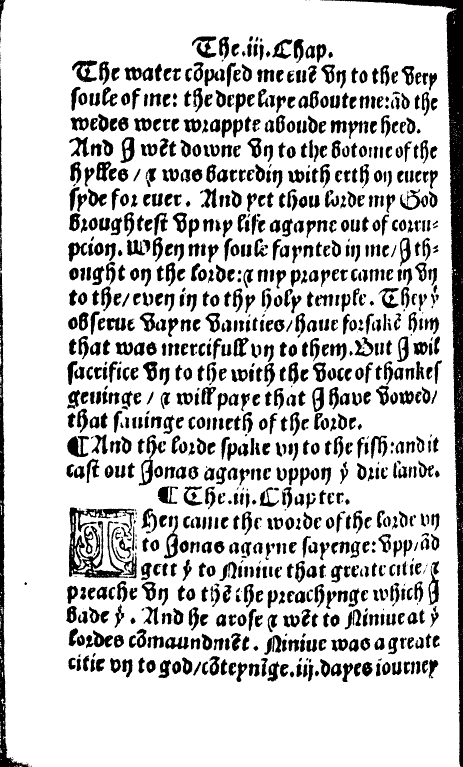 The.iij.Chap.
The water cõpased me euẽ vn to the very
soule of me: the depe laye aboute me: ãd the
wedes were wrappte aboude myne heed.
And I wẽt downe vn to the botome of the
hylles / ⁊ was barredin with erth on euery
syde for euer. And yet thou lorde my God
broughtest vp my life agayne out of corru⸗
pcion. When my soule faynted in me / I th⸗
ought on the lorde: ⁊ my prayer came in vn
to the / even in to thy holy temple. They yͭ
obserue vayne vanities / haue forsakẽ him
that was mercifull vn to them. But I wil
sacrifice vn to the with the voce of thankes
geuinge / ⁊ will paye that I have vowed /
that sauinge cometh of the lorde.
¶ And the lorde spake vn to the fish: and it
cast out Jonas agayne vppon yͤ drie lande.
¶ The.iij.Chapter.
Then came the worde of the lorde vn
to Jonas agayne sayenge: vpp / ãd
gett yͤ to Niniue that greate citie / ⁊
preache vn to thẽ the preachynge which I
bade yͤ. And he arose ⁊ wẽt to Niniue at yͤ
lordes cõmaundmẽt. Niniue was a greate
citie vn to god / cõteynĩge.iij.dayes iourney